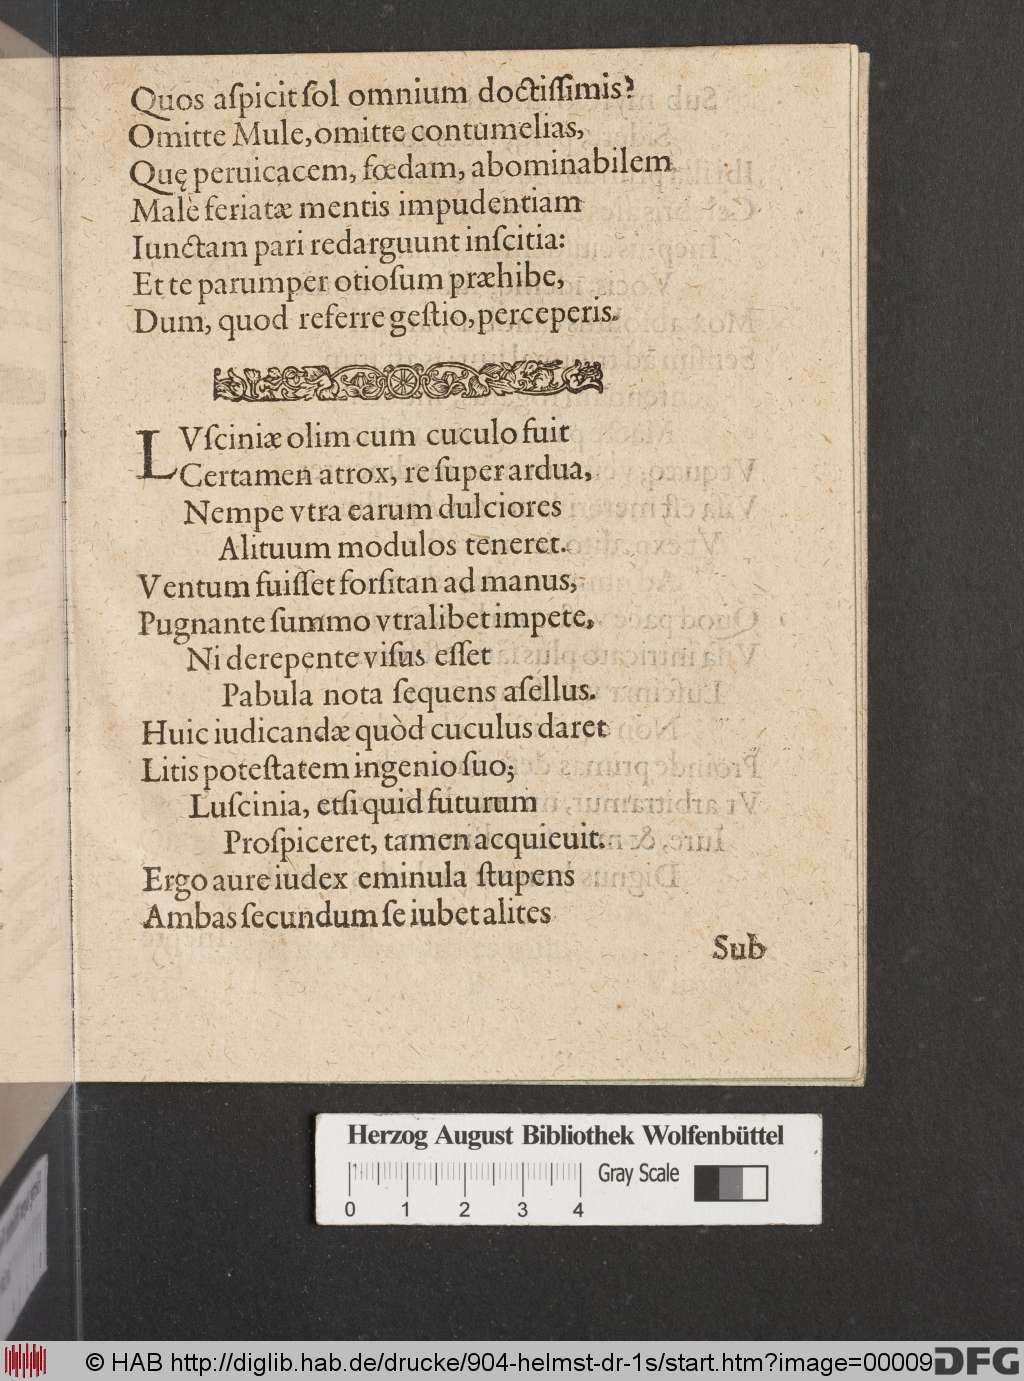 Quos aſpicit ſol omnium doctiſſimis?
Omitte Mule, omitte contumelias,
Quę peruicacem, fœdam, abominabilem
Malè feriatæ mentis impudentiam
Iunctam pari redarguunt inſcitia:
Et te parumper otioſum præhibe,
Dum, quod referre geſtio, perceperis.
LVſciniæ olim cum cuculo fuit
Certamen atrox, re ſuper ardua,
Nempe vtra earum dulciores
Alituum modulos teneret.
Ventum fuiſſet forſitan ad manus,
Pugnante ſummo vtralibet impete,
Ni derepente viſus eſſet
Pabula nota ſequens aſellus.
Huic iudicandæ quòd cuculus daret
Litis poteſtatem ingenio ſuo;
Luſcinia, etſi quid futurum
Proſpiceret, tamen acquieuit.
Ergo aure iudex eminula ſtupens
Ambas ſecundum ſe iubet alites
Sub
Herzog August Bibliothek Wolfenbüttel
Gray Scale
0 1 2 3 4
© HAB http://diglib.hab.de/drucke/904-helmst-dr-1s/start.htm?image=00009
DFG